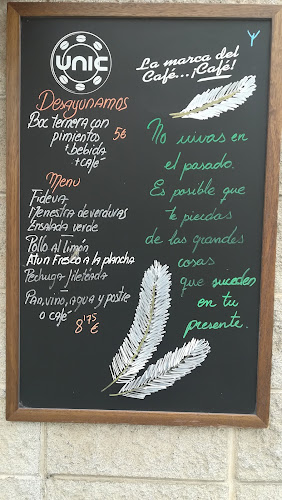 UNIC
La marca del
Café...¡Café!
Desayunamos
Boc ternera con
pimientos 5€
+bebida
+café
Menu
Fideua
Menestra de verduras
Ensalada verde
Pollo Al limón
Atun Fresco a la plancha
Pechuga fileteada
Pan, vino, agua y postre
o café
8'75 €
No vivas en
el pasado.
Es posible que
te pierdas
de las grandes
cosas
que suceden
en tu
presente.